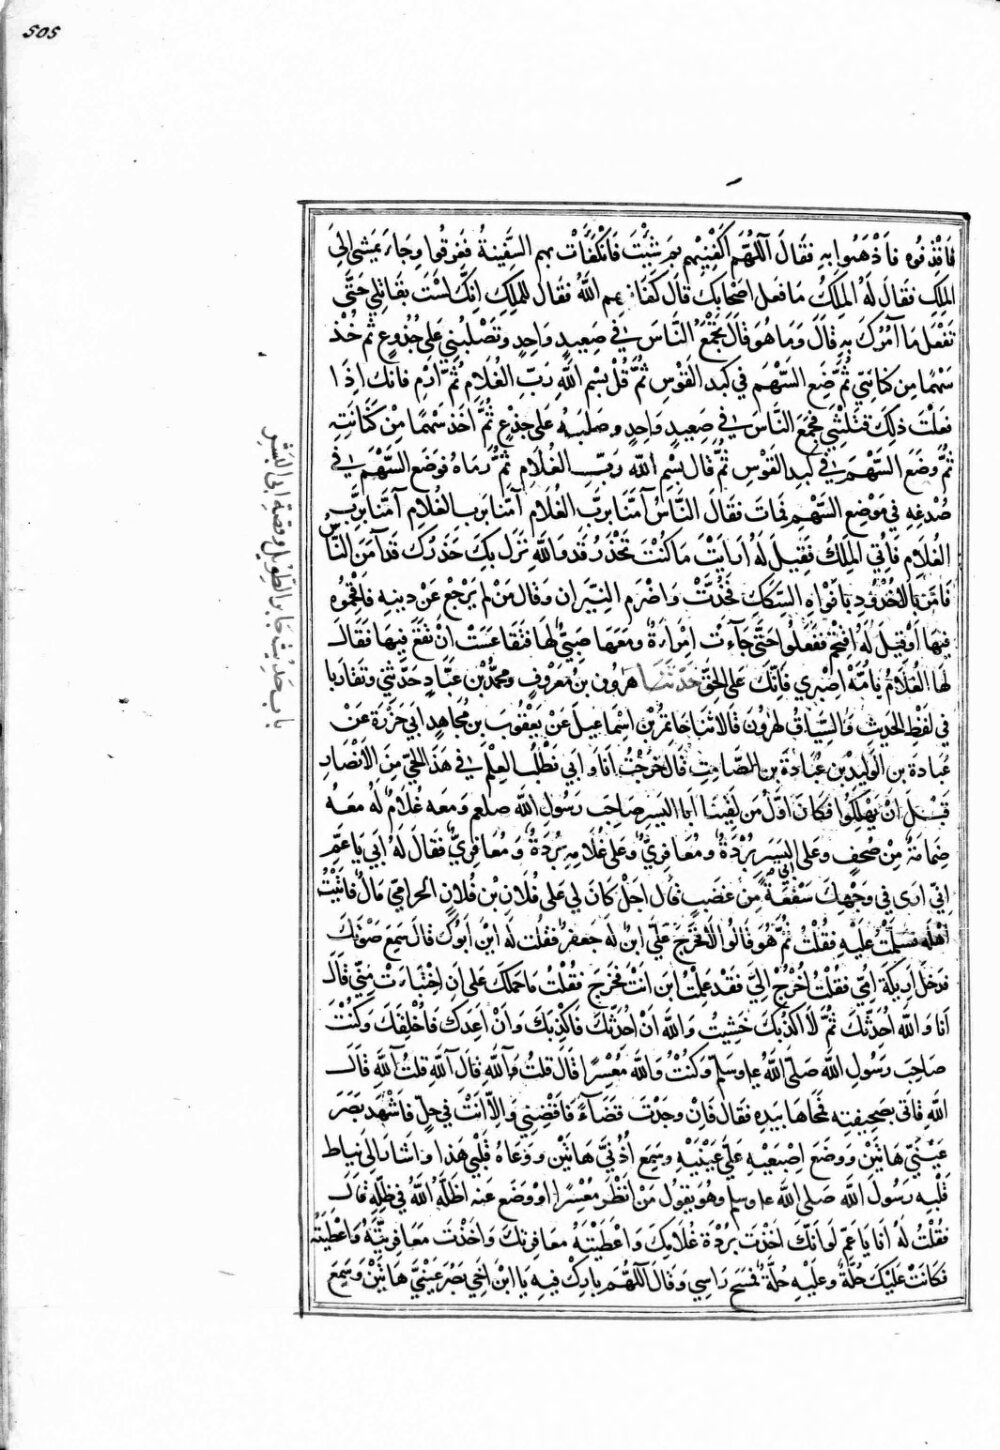 505
فاقذفوه فاذهبوا به فقال اللهم اكفنيهم بم شئت فانكفأت بهم السفينة فغرقوا وجاء يمشى الى
الملك فقال له الملك ما فعل اصحابك قال كفانيهم الله فقال للملك انك لست بقاتلي حتى
تفعل ما آمرك به قال وما هو قال تجمع الناس في صعيد واحد وتصلبني على جذوع ثم خذ
سهما من كنانتي ثم ضع السهم في كبد القوس ثم قل بسم الله رب الغلام ثم ارم فانك اذا
فعلت ذلك قتلتني فجمع الناس في صعيد واحد وصلبه على جذع ثم اخذ سهما من كنانته
ثم وضع السهم في كبد القوس ثم قال بسم الله رب الغلام ثم رماه فوضع السهم في
صدغه في موضع السهم فمات فقال الناس آمنا برب الغلام آمنا برب الغلام آمنا برب
الغلام فاتي الملك فقيل له ارايت ما كنت تحذر قد والله نزل بك حذرك قد آمن الناس
فامر بالاخدود بافواه السكك فخدت واضرم النيران وقال من لم يرجع عن دينه فاقحموه
فيها او قيل له اقتحم ففعلوا حتى جاءت امراة ومعها صبي لها فتقاعست ان تقع فيها فقال
لها الغلام يا امه اصبري فانك على الحق حدثنا هرون بن معروف ومحمد بن عباد حدثني وتقاربا
في لفظ الحديث والسياق لهرون قالا ثنا حاتم بن اسماعيل عن يعقوب بن مجاهد ابي حزرة عن
عبادة بن الوليد بن عبادة بن الصامت قال خرجت انا وابي نطلب العلم في هذا الحي من الانصار
قبل ان يهلكوا فكان اول من لقينا ابا اليسر صاحب رسول الله صلعم ومعه غلام له معه
ضمامة من صحف وعلى ابي اليسر بردة ومعافري وعلى غلامه بردة ومعافري فقال له ابي يا عم
اني ارى في وجهك سفعة من غضب قال اجل كان لي على فلان بن فلان الحرامي مال فاتيت
اهله فسلمت عليه فقلت ثم هو قالوا لا فخرج علي ابن له جعفر فقلت له اين ابوك قال سمع صوتك
فدخل اريكة امي فقلت اخرج الي فقد علمت اين انت فخرج فقلت ما حملك على ان اختبات مني قال
انا والله احدثك ثم لا اكذبك خشيت والله ان احدثك فاكذبك وان اعدك فاخلفك وكنت
صاحب رسول الله صلى الله عليه وسلم وكنت والله معسرا قال قلت آلله قال آلله قلت آلله قال
الله فاتى بصحيفته فمحاها بيده فقال فان وجدت قضاء فاقضني والا انت في حل فاشهد بصر
عيني هاتين ووضع اصبعيه على عينيه وسمع اذني هاتين ووعاه قلبي هذا واشار الى نياط
قلبه رسول الله صلى الله عليه وسلم وهو يقول من انظر معسرا او وضع عنه اظله الله في ظله قال
فقلت له انا يا عم لو انك اخذت بردة غلامك واعطيته معافريك واخذت معافريه واعطيته
فكانت عليك حلة وعليه حلة فمسح راسي وقال اللهم بارك فيه يا ابن اخي بصر عيني هاتين وسمع
باب حديث جابر الطويل وقصة ابى اليسر